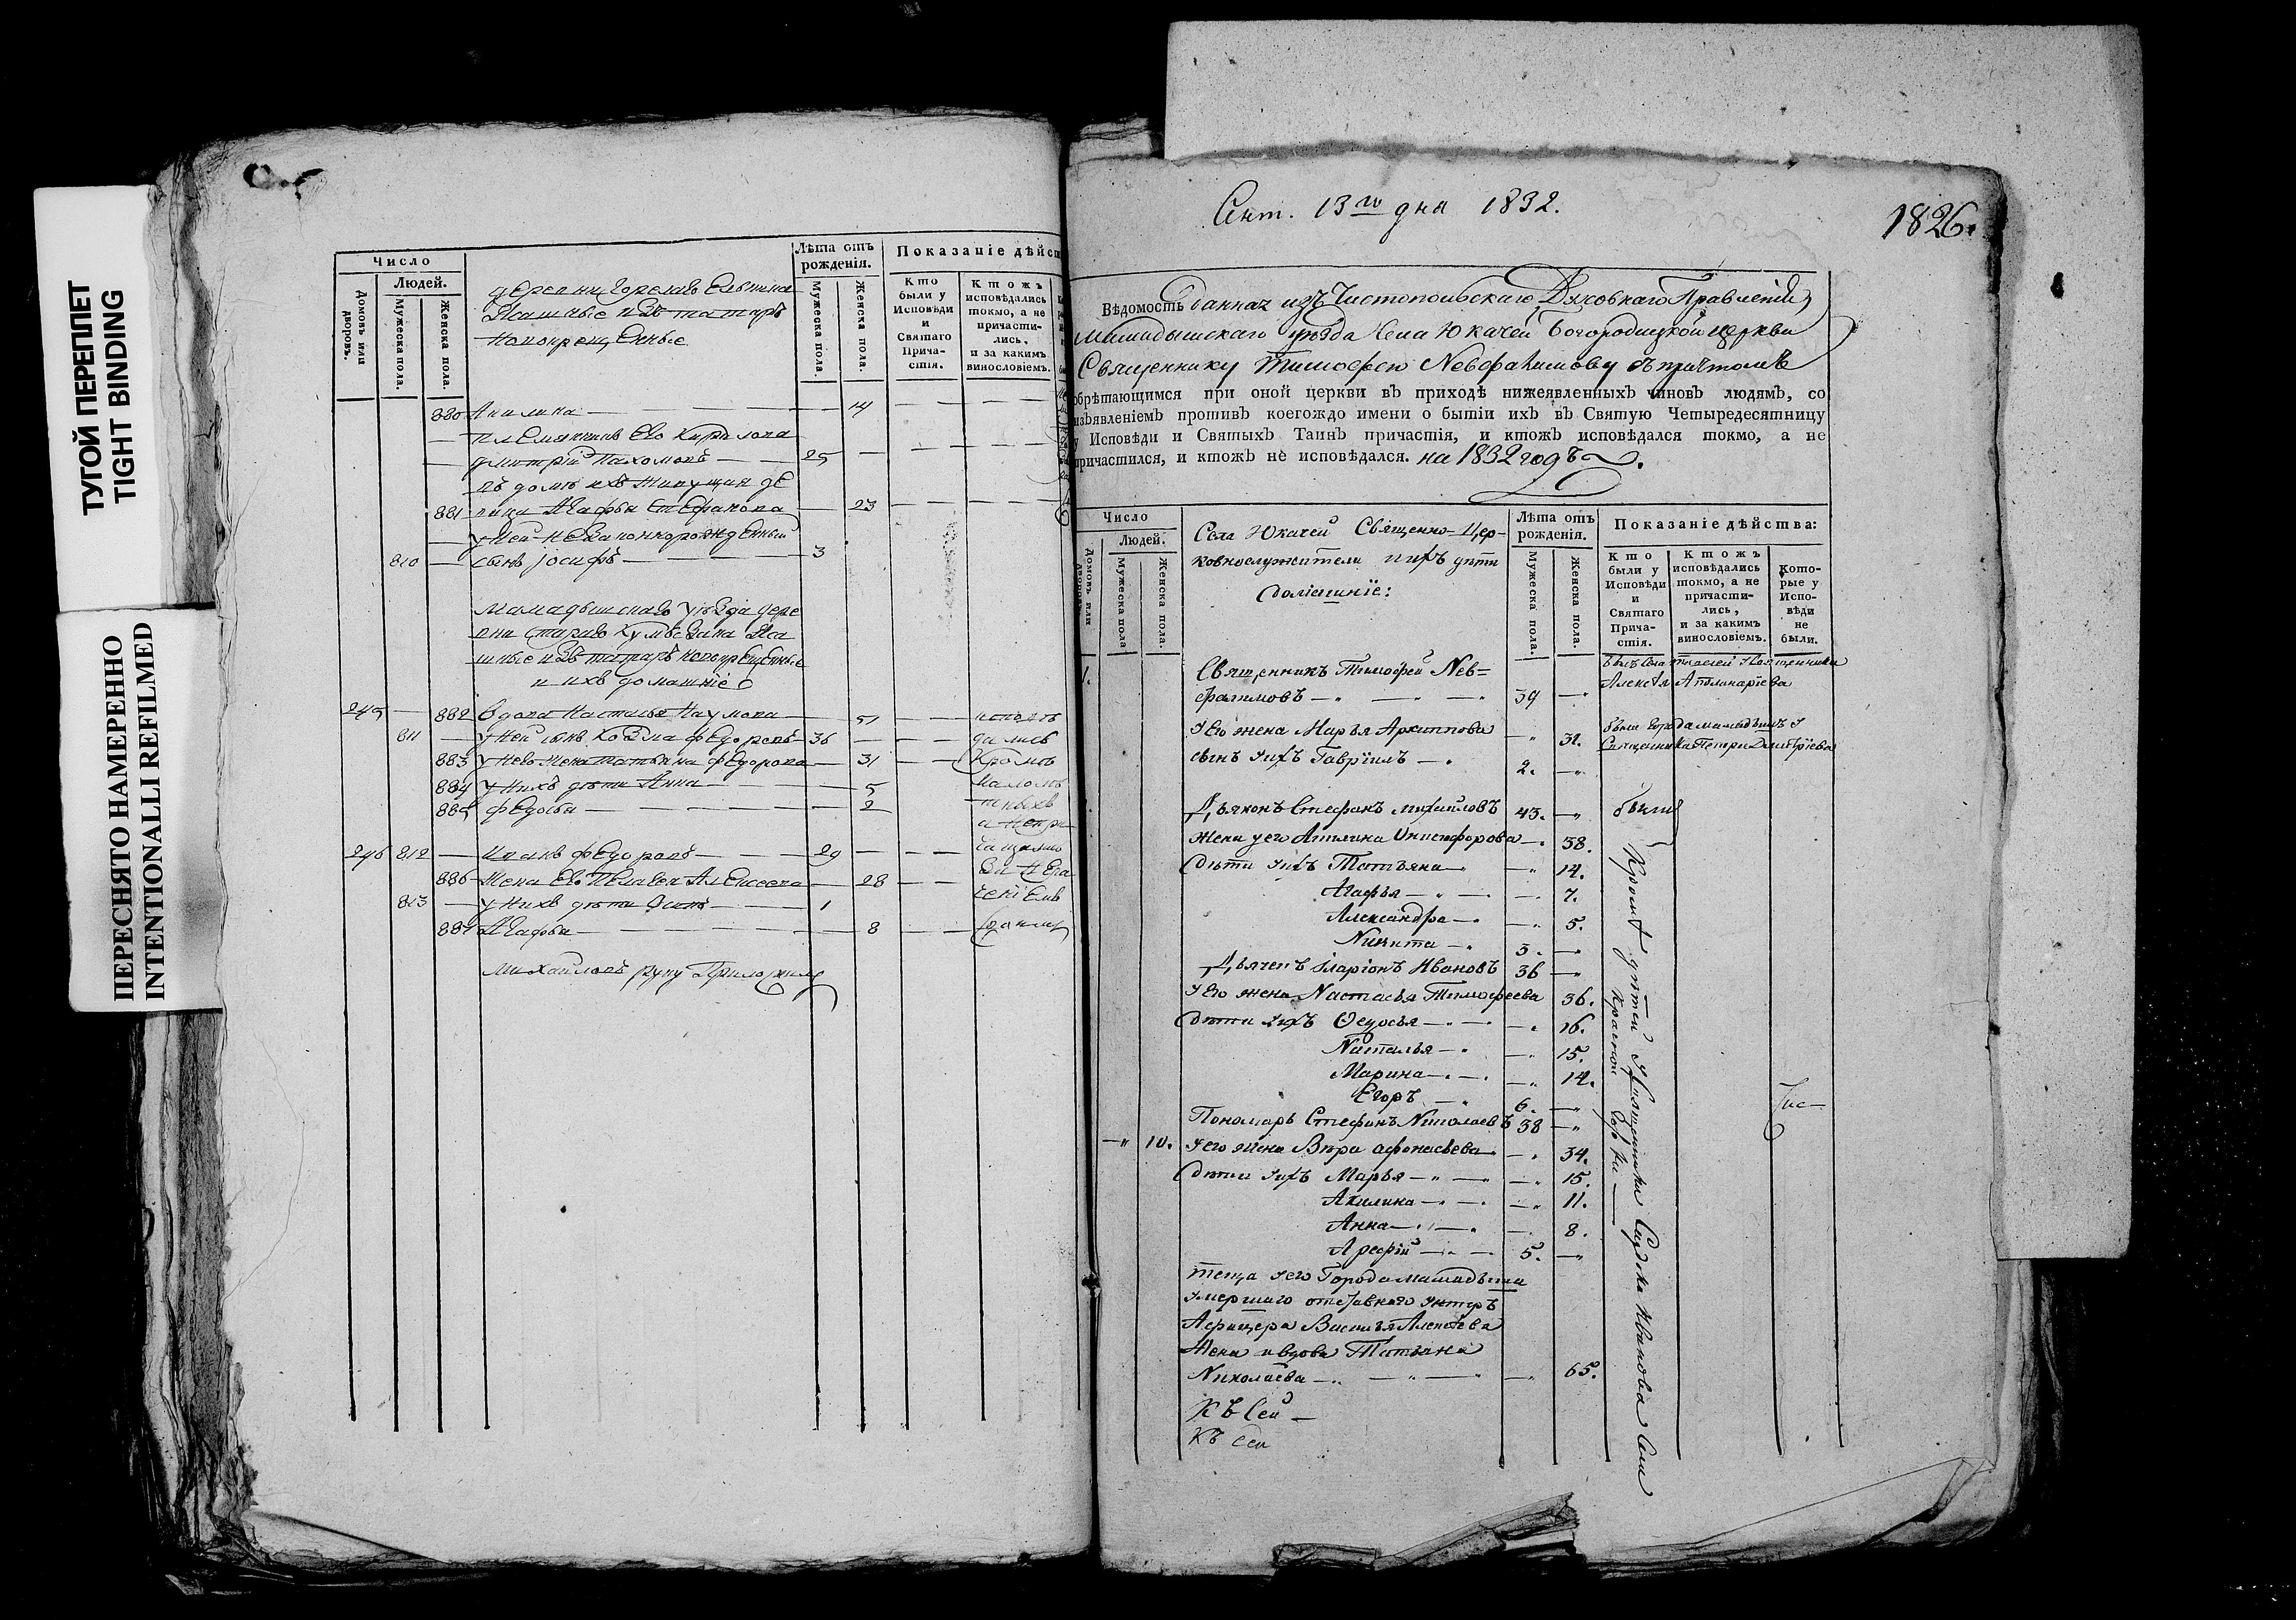 ТУГОЙ ПЕРЕПЛЕТ
TIGHT BINDING
ПЕРЕСНЯТО НАМЕРЕННО
INTENTIONALLI REFILMED
Число
Людей.
Домовъ или дворовъ.
Мужеска пола.
Женска пола.
Лѣта отъ рожденія.
Мужеска пола.
Женска пола.
Показаніе дѣйст
Кто были у Исповѣди и Святаго Причастія.
Ктожъ исповѣдались токмо, а не причастились, и за какимъ винословіемъ.
изъ татаръ
новокрещенные
880 Акилина — 14
племянникъ Его Кирилова
Дмитрій Пахомовъ — 25
въ домѣ ихъ живущая де
881 вица Агафья Стефанова — 23
у Ней незаконнорожденный
810 — сынъ Іосифъ — 3
мамадышскаго уѣзда дере
вни стараго
изъ татаръ новокрещенные
и ихъ домашніе
245 — 882 Вдова Настасья Наумова — 51
811 — у Ней сынъ Козма Федоровъ — 36
883 у Него жена Татьяна Федорова — 31
884 у Нихъ дѣти Анна — 5
885 Федосья — 2
246 812 — Иванъ Федоровъ — 29
886 жена Его Пелагея Алексеева — 28
813 — у Нихъ дѣти — 1
887 Агафья — 8
исповѣ
дались
Кромѣ
малолѣ
тныхъ
а непри
Михайловъ руку Приложилъ
Сент. 13го дня 1832.
1826.
Вѣдомость данная изъ Чистопольскаго Духовнаго Правленія,
мамадышскаго уѣзда села Юкачей Богородицкой церкви
Священнику Тимофею Невфалимову съ причтомъ
обрѣтающимся при оной церкви въ приходѣ нижеявленныхъ чиновъ людямъ, со
изъявленіемъ противъ коегождо имени о бытіи ихъ въ Святую Четыредесятницу
у Исповѣди и Святыхъ Таинъ причастія, и ктожъ исповѣдался токмо, а не
причастился, и ктожъ не исповѣдался. на 1832 годъ.
Число
Людей.
Домовъ или дворовъ
Мужеска пола
Женска пола.
Села Юкачей Священно-Цер-
ковнослужители и ихъ дѣти
Домашніе:
Лѣта отъ рожденія.
Мужеска пола.
Женска пола.
Показаніе дѣйства:
Кто были у Исповѣди и Святаго Причастія.
Ктожъ исповѣдались токмо, а не причастились, и за какимъ винословіемъ.
Которые у Исповѣди не были.
1. Священникъ Тимофей Нев-
фалимовъ — 39
Алексѣя Аполинаріева
Его жена Марья Архиппова — 31.
были города мамадыша у
Священника Петра Димитріева
сынъ ихъ Гавріилъ — 2.
Дьяконъ Стефанъ михайловъ 43. были
Жена у его Акилина Онисифорова — 38.
Дѣти ихъ Татьяна — 14.
Агафья — 7.
Александра — 5.
Никита — 3.
Дьячекъ Иларіонъ Ивановъ 36
у его жена Настасья Тимофеева 36.
Дѣти ихъ Ѳедосья — 16.
Наталья — 15.
Марина — 14.
Егоръ — 6.
Пономарь Стефанъ Николаевъ 38
10. у его жена Вѣра Афонасьева — 34.
Дѣти ихъ Марья — 15.
Акилина — 11.
Анна — 8.
Арефій — 5.
теща у его Города Мамадыша
умершаго отставнаго унтеръ
Афицера Василья Алексѣева
Жена вдова Татьяна
Николаева — 65.
Къ Сей —
Къ Сей
Кромѣ дѣтей у Священника Ивана